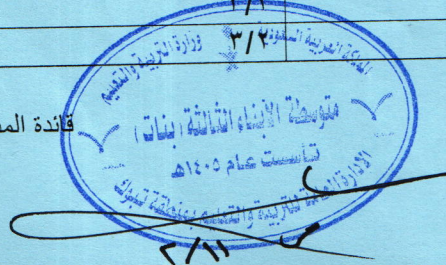 ٣/٢
المملكة العربية السعودية
وزارة التربية والتعليم
قائدة
متوسطة الأبناء الثالثة (بنات)
تأسست عام ١٤٠٥هـ
الإدارة العامة للتربية والتعليم بمنطقة تبوك
٢/١١